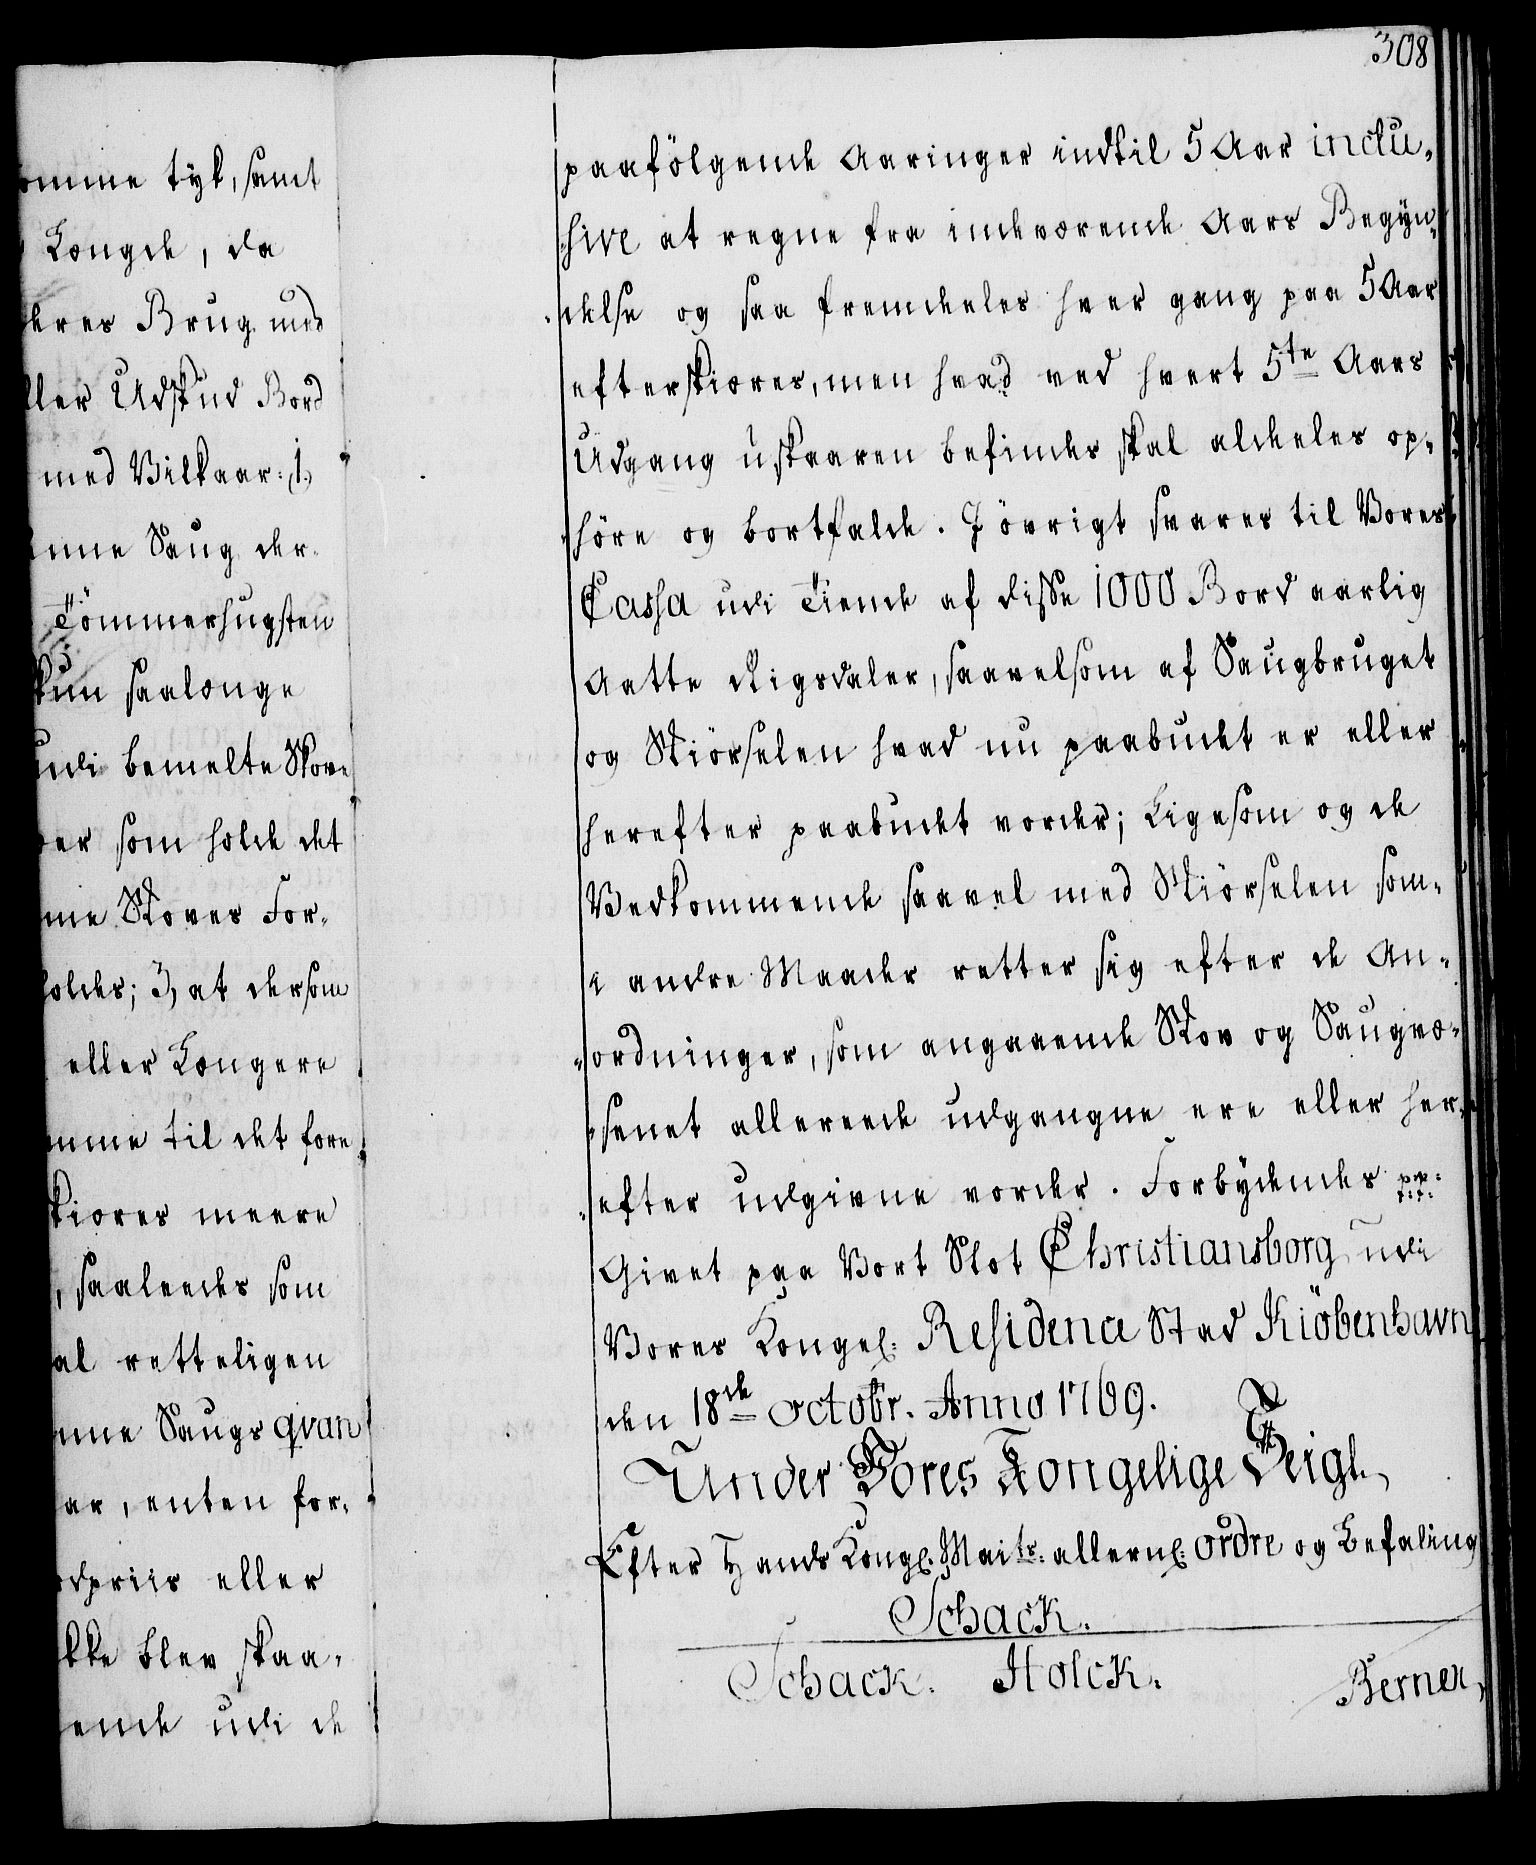 omme tyk, samt
Længde, da
deres Brug med
ller Udskud Bord
med Vilkaar: 1,
enne Saug der-
Tömmerhugsten
kun saalænge
udi bemelte Skov-
der som holde det
me Skoves For-
holdes; 3, at dersom
eller Længere
omme til det fore
kiæres meere
, saaleedes som
al retteligen
nne Saugs qvan
ar, enten for-
odpriis eller
kke blev skaa-
ende udi de
308
paafölgende Aaringer indtil 5 Aar inclu-
sive at regne fra indeværende Aars Begyn-
delse og saa fremdeeles hver gang paa 5 Aar
efterskiæres, men hvad ved hvert 5te Aars
Udgang uskaaren befindes skal aldeeles op-
höre og bortfalde. I övrigt svares til Vores
Cassa udi Tiende af disse 1000 Bord aarlig
Aatte Rigsdaler, saavelsom af Saugbruget
og Skiörselen hvad nu paabudt er eller
herefter paabudet vorder; Ligesom og de
Vedkommende saavel med Skiörselen som
i andre Maader retter sig efter de An-
ordninger, som angaaende Skov og Saugvæ-
senet allereede udgangne ere eller her-
efter udgivne vorder. Forbydendes pp:
Givet paa Vort Slot Christiansborg udi
Vores Kongel: Residence Stad Kiöbenhavn
den 18de Octobr. Anno 1769.
Under Vores Kongelige Zeigl,
Efter Hands Kongl. Maits: allern: ordre og Befaling
Schack.
Schack. Holck. Berner,